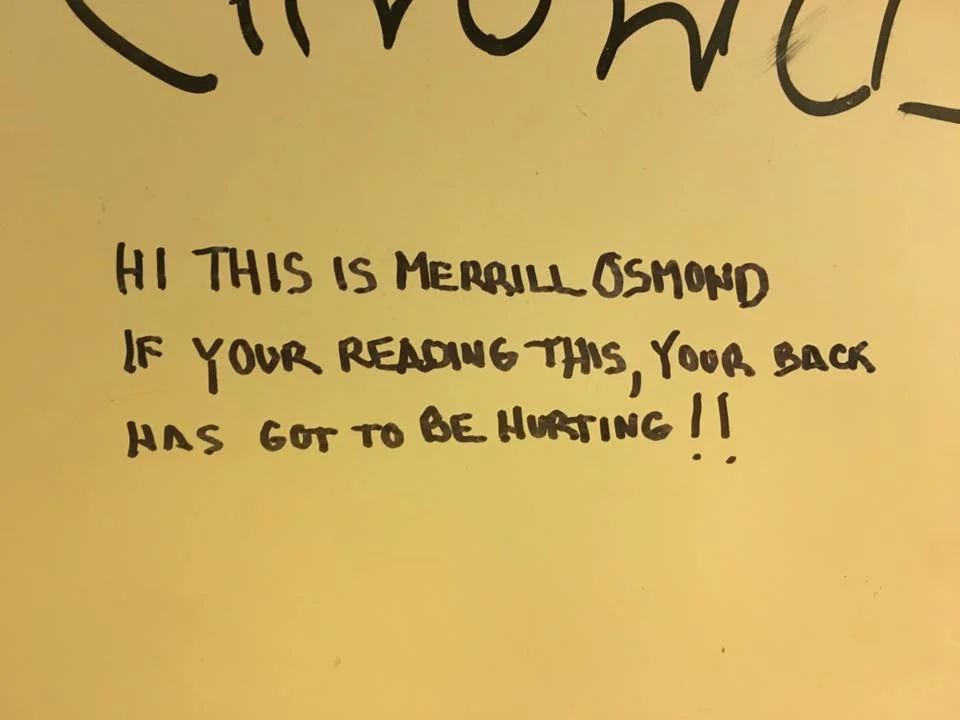 HI THIS IS MERRILL OSMOND
IF YOUR READING THIS, YOUR BACK
HAS GOT TO BE HURTING!!